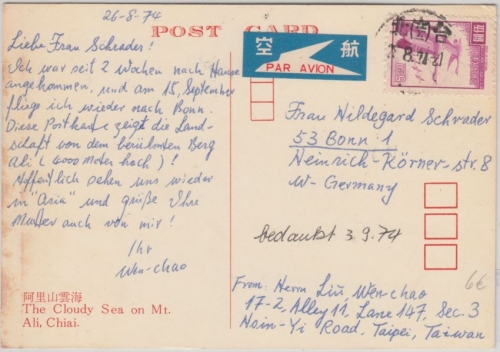 26-8-74
POST CARD
Liebe Frau Schrader!
Ich war seit 2 Wochen nach Hause
angekommen, und am 15. September
fliege ich wieder nach Bonn.
Diese Postkarte zeigt die Land-
schaft von dem berühmten Berg
Ali (4000 Meter hoch)!
Hoffentlich sehen uns wieder
in "Asia" und grüße Ihre
Mutter auch von mir!
Ihr
Wen-chao
阿里山雲海
The Cloudy Sea on Mt.
Ali, Chiai.
空航
PAR AVION
Frau Hildegard Schrader
53 Bonn 1
Heinrich-Körner-str. 8
W-Germany
bedankt 3 9.74
6€
From: Herrn Liu, Wen-chao
17-2, Alley 11, Lane 147, Sec. 3
Hsin-Yi Road, Taipei, Taiwan